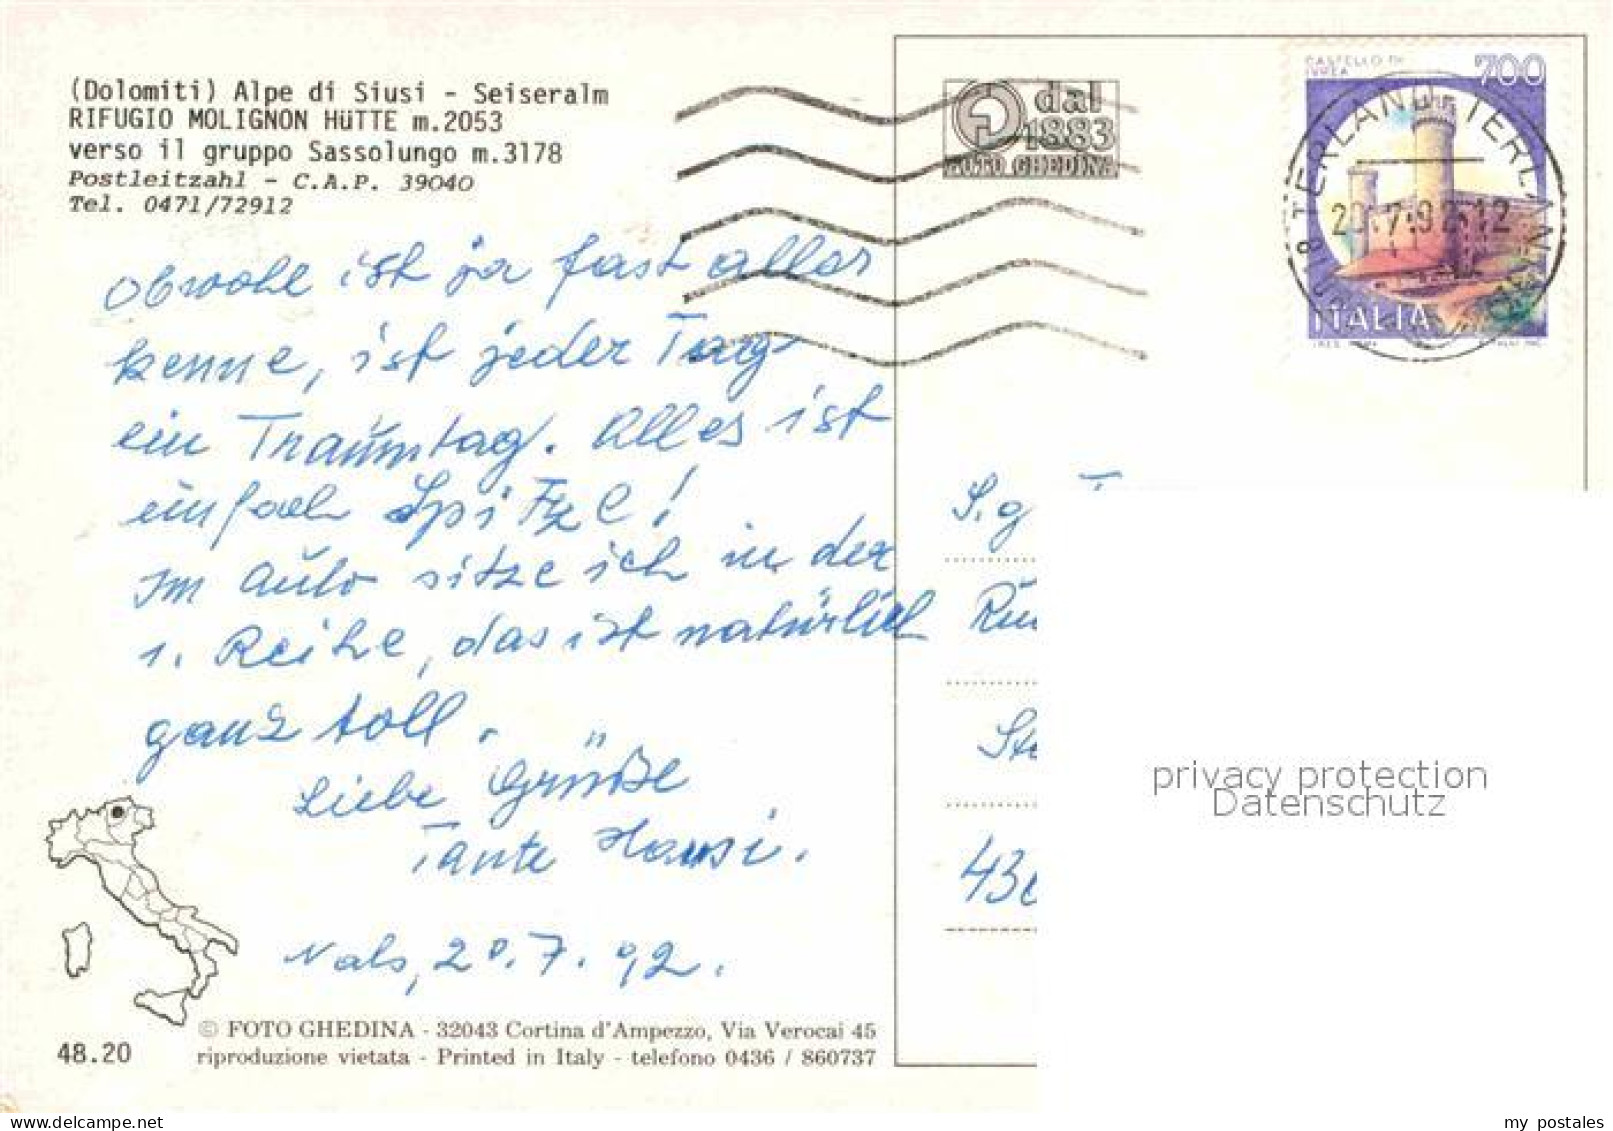 (Dolomiti) Alpe di Siusi - Seiseralm
RIFUGIO MOLIGNON HüTTE m.2053
verso il gruppo Sassolungo m.3178
Postleitzahl - C.A.P. 39040
Tel. 0471/72912
Obwohl ist ja fast alles
kenne, ist jeder Tag
ein Traumtag. Alles ist
einfach Spitze!
Im Auto sitze ich in der
1. Reihe, das ist natürlich
ganz toll.
Liebe Grüße
Tante Hansi.
Nals, 20.7.92.
© FOTO GHEDINA - 32043 Cortina d'Ampezzo, Via Verocai 45
riproduzione vietata - Printed in Italy - telefono 0436 / 860737
48.20
dal
1883
FOTO GHEDINA
CASTELLO DI
IVREA
700
TERLANO TERLAN
20.7.92.12
ITALIA
Sig
Ru
St
43
privacy protection
Datenschutz
delcampe.net
my_postales